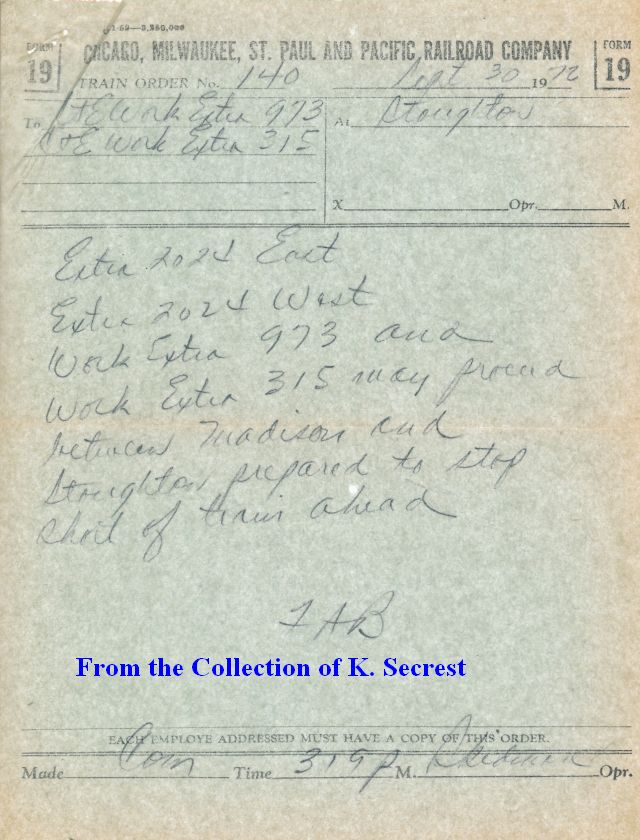 1-52—3,250,000
FORM 19
CHICAGO, MILWAUKEE, ST. PAUL AND PACIFIC RAILROAD COMPANY
FORM 19
TRAIN ORDER No. 140 Sept 30 1972
To C+E Work Extra 973 At Stoughton
C+E Work Extra 315
X Opr. M.
Extra 2024 East
Extra 2024 West
Work Extra 973 and
Work Extra 315 may proceed
between Madison and
Stoughton prepared to stop
short of train ahead
From the Collection of K. Secrest
EACH EMPLOYE ADDRESSED MUST HAVE A COPY OF THIS ORDER.
Made Com Time 319 P M. Opr.